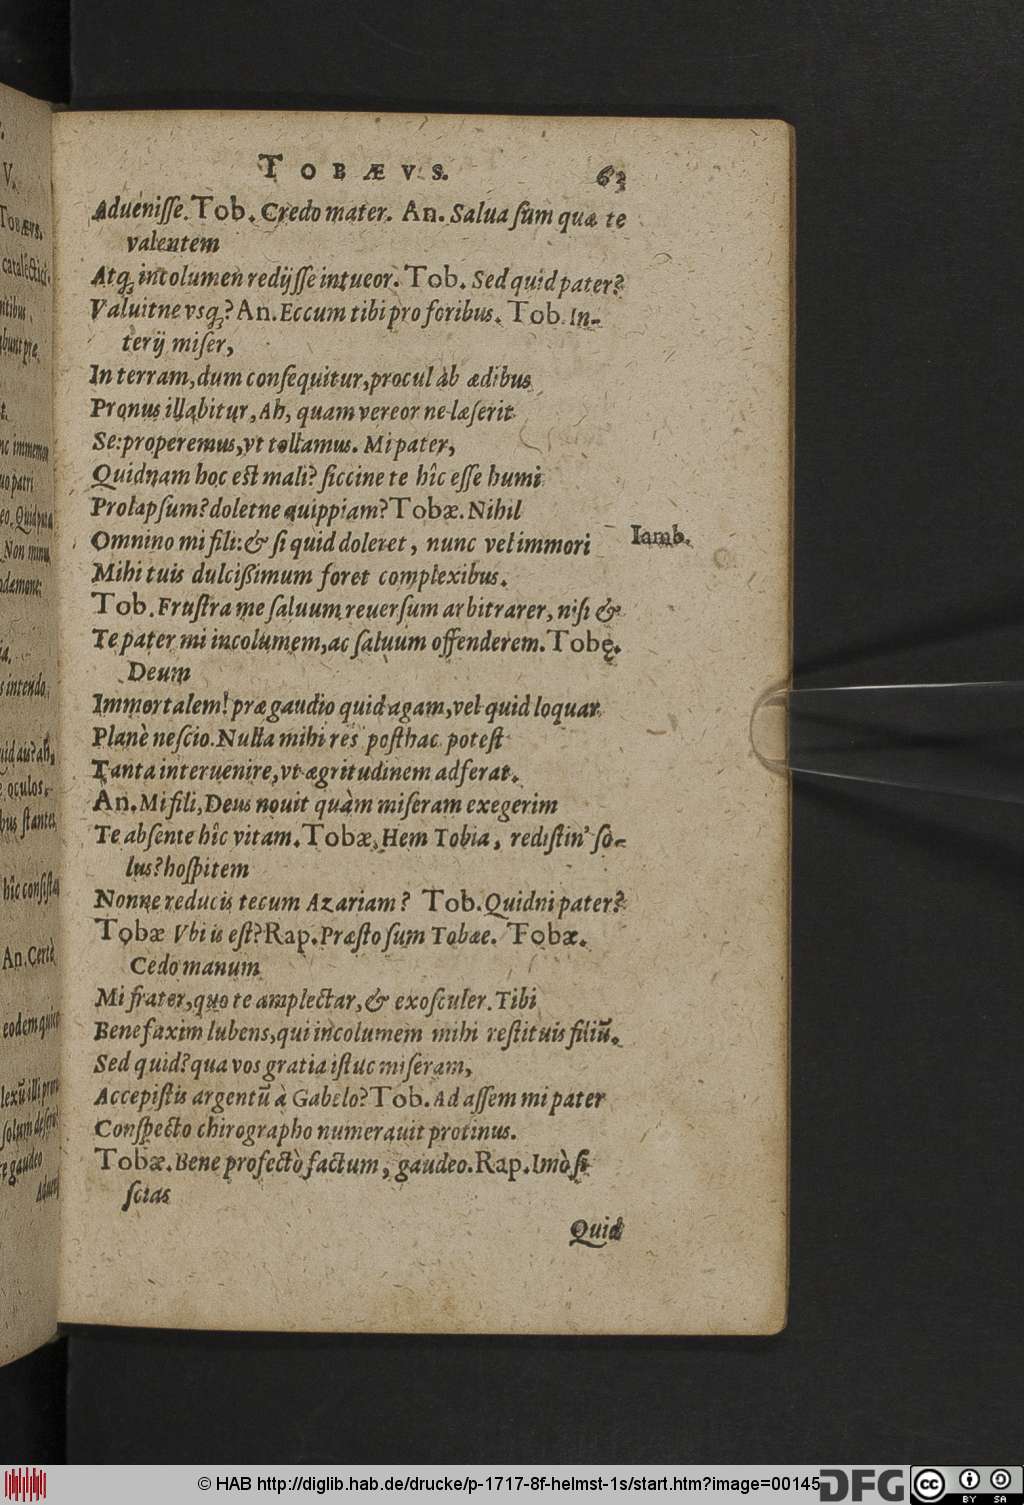 TOBÆVS. 63
Aduenisse. Tob. Credo mater. An. Salua sum quæ te
valentem
Atq; incolumen redijsse intueor. Tob. Sed quid pater?
Valuitne vsq;? An. Eccum tibi pro foribus. Tob. In-
terij miser,
In terram, dum consequitur, procul ab ædibus
Pronus illabitur, Ah, quam vereor ne læserit
Se: properemus, vt tollamus. Mi pater,
Quidnam hoc est mali? siccine te hîc esse humi
Prolapsum? doletne quippiam? Tobæ. Nihil
Omnino mi fili: & si quid doleret, nunc vel immori Iamb.
Mihi tuis dulcißimum foret complexibus.
Tob. Frustra me saluum reuersum arbitrarer, nisi &
Te pater mi incolumem, ac saluum offenderem. Tobę.
Deum
Immortalem! præ gaudio quid agam, vel quid loquar
Planè nescio. Nulla mihi res posthac potest
Tanta interuenire, vt ægritudinem adferat.
An. Mi fili, Deus nouit quàm miseram exegerim
Te absente hîc vitam. Tobæ. Hem Tobia, redistin' so-
lus? hospitem
Nonne reducis tecum Azariam? Tob. Quidni pater?
Tobæ Vbi is est? Rap. Præsto sum Tobæe. Tobæ.
Cedo manum
Mi frater, quo te amplectar, & exosculer. Tibi
Benefaxim lubens, qui incolumem mihi restituis filiū.
Sed quid? qua vos gratia istuc miseram,
Accepistis argentū à Gabelo? Tob. Ad assem mi pater
Conspecto chirographo numerauit protinus.
Tobæ. Bene profectò factum, gaudeo. Rap. Imò si
scias
Quid
V.
TOBÆVS.
catalectici.
nc immemor
uo patri
Non minu
s intendo.
oculos.
bus stantes
hîc consista
An. Certè
eodem quico
gaudeo
© HAB http://diglib.hab.de/drucke/p-1717-8f-helmst-1s/start.htm?image=00145
DFG
cc BY SA